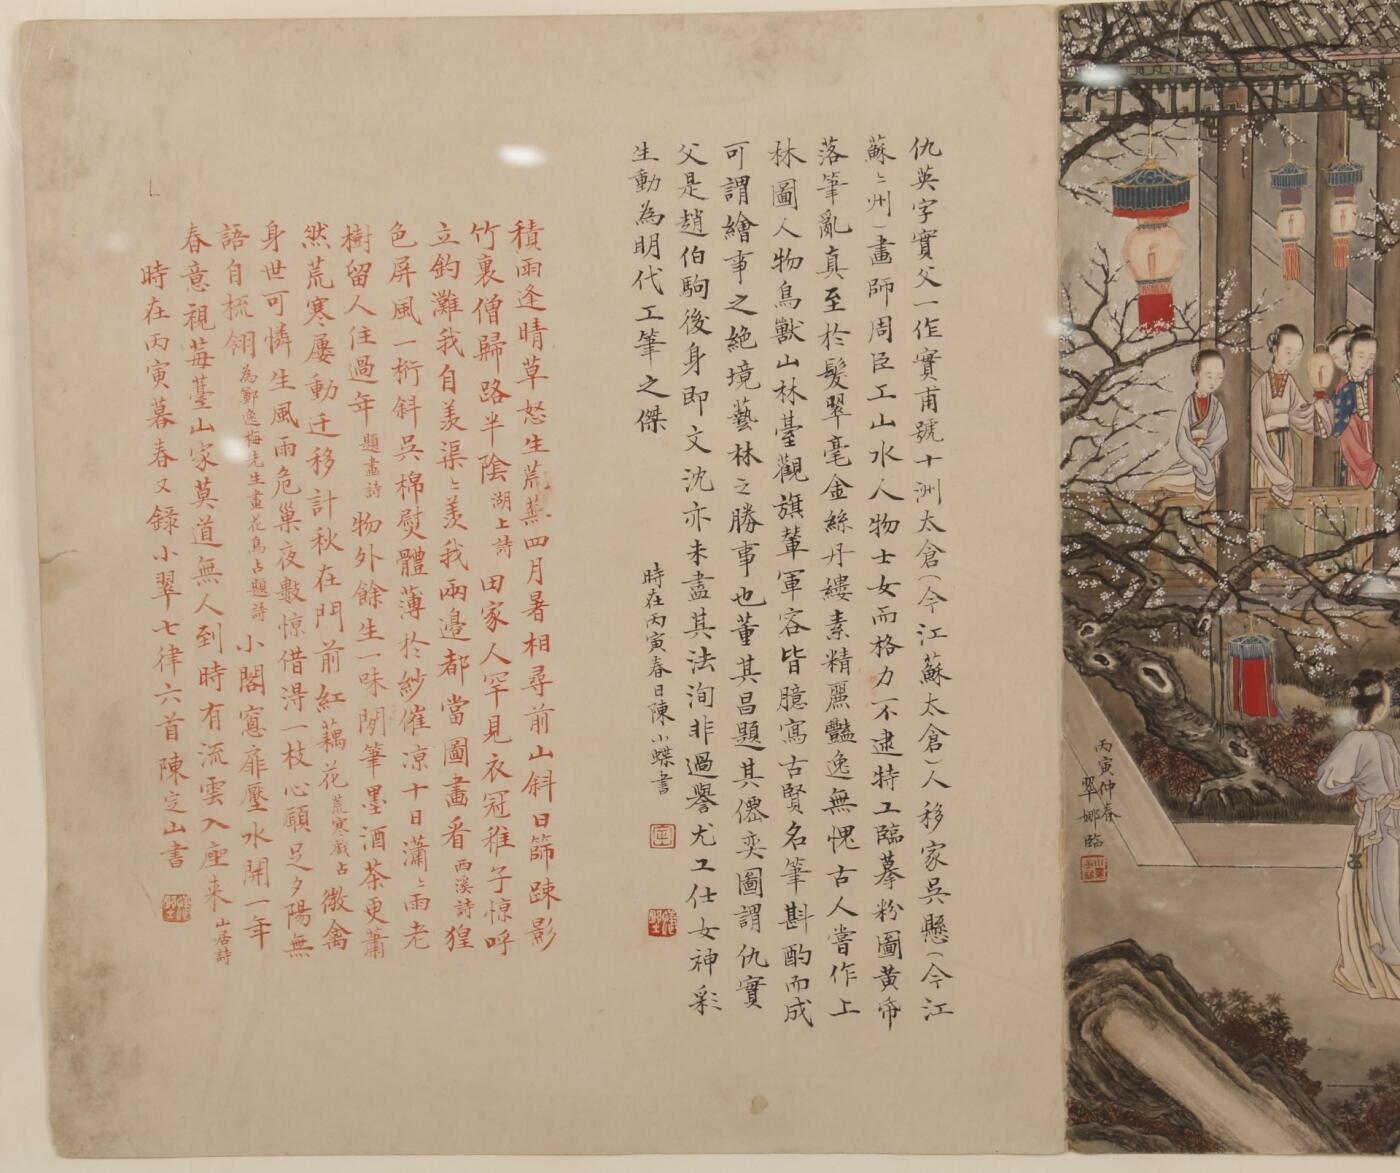 仇英字實父一作實甫號十洲太倉(今江蘇太倉)人移家吳縣(今江
蘇蘇州)畫師周臣工山水人物士女而格力不逮特工臨摹粉圖黃帋
落筆亂真至於髮翠毫金絲丹縷素精麗豔逸無愧古人嘗作上
林圖人物鳥獸山林臺觀旗輦軍容皆臆寫古賢名筆斟酌而成
可謂繪事之絕境藝林之勝事也董其昌題其僊奕圖謂仇實
父是趙伯駒後身即文沈亦未盡其法洵非過譽尤工仕女神彩
生動為明代工筆之傑
時在丙寅春日陳小蝶書
積雨逢晴草怒生荒蕪四月暑相尋前山斜日篩疎影
竹裏僧歸路半陰湖上詩 田家人罕見衣冠稚子惊呼
立釣灘我自羨渠〻羨我兩邊都當圖畫看西溪詩 猩
色屏風一桁斜吳棉熨體薄於紗催凉十日瀟〻雨老
樹留人住過年題畫詩 物外餘生一味閒筆墨酒茶更蕭
然荒寒屢動迁移計秋在門前紅藕花荒寒戲占 微禽
身世可憐生風雨危巢夜數惊借得一枝心願足夕陽無
語自梳翎為鄭逸梅先生畫花鳥占題詩 小閣窻扉壓水開一年
春意視莓薹山家莫道無人到時有流雲入座来山居詩
時在丙寅暮春又錄小翠七律六首陳定山書
丙寅仲春
翠娜臨